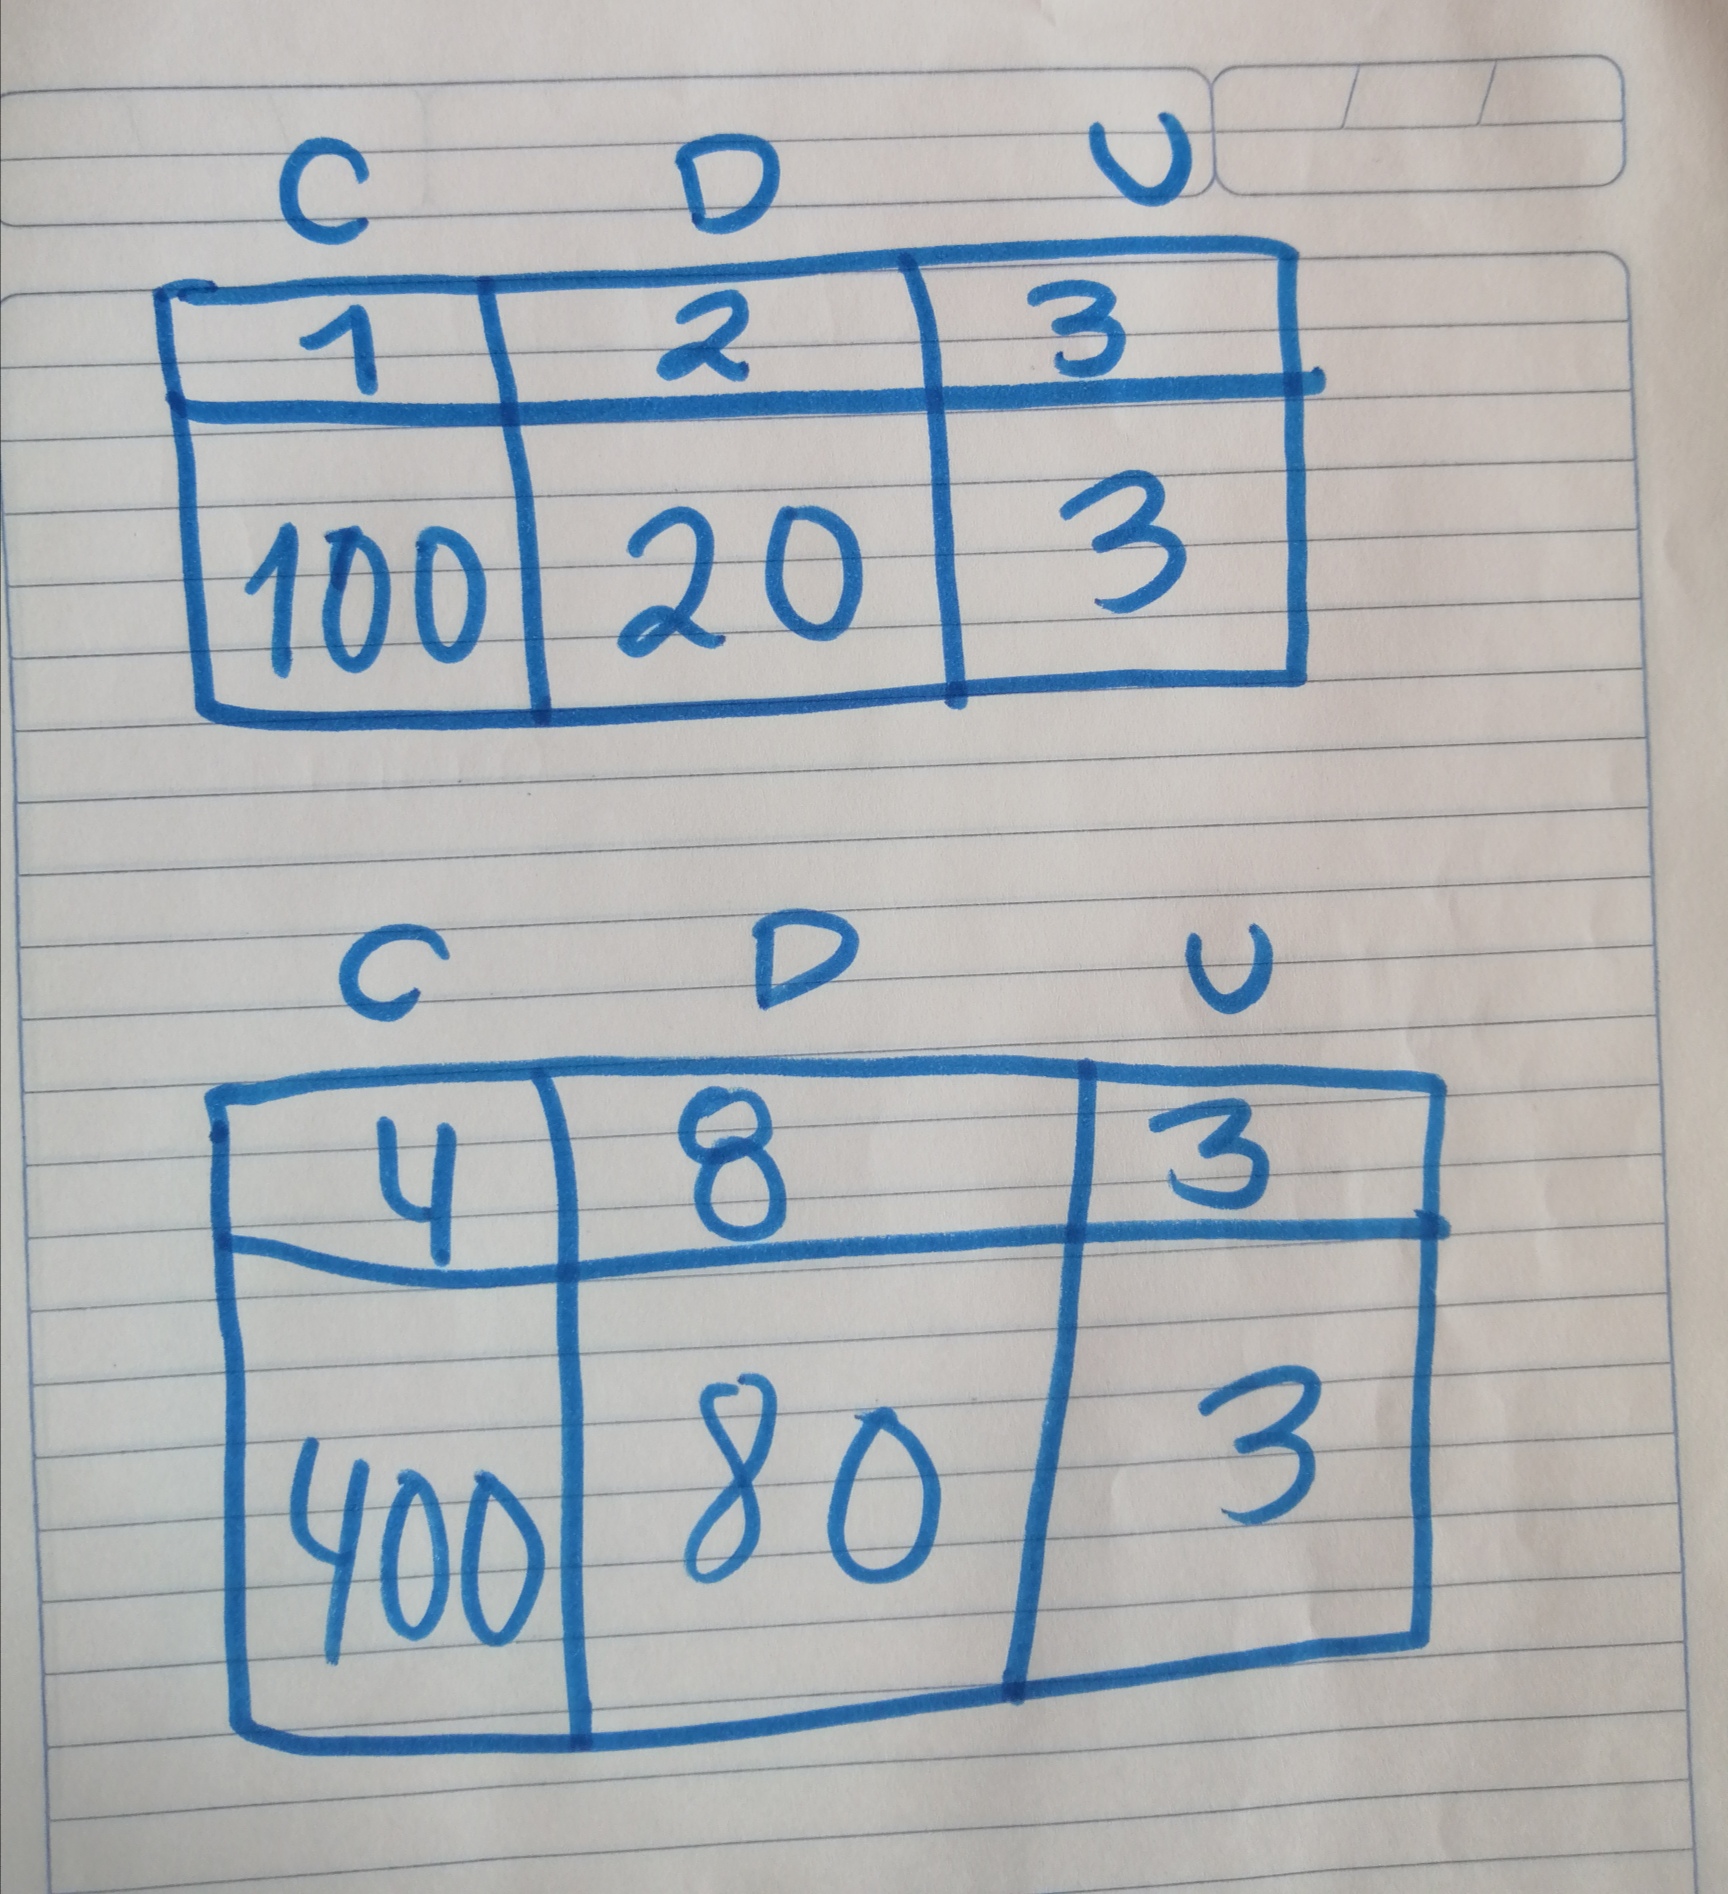 C D U
1 2 3
100 20 3
C D U
4 8 3
400 80 3